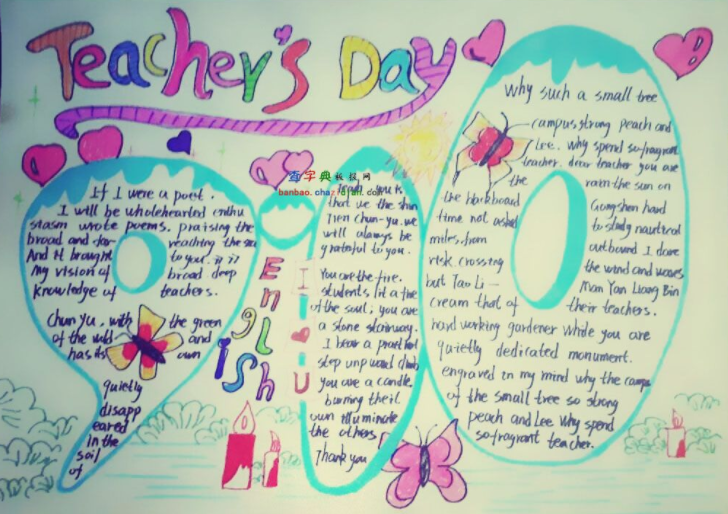 Teacher's Day
If I were a poet.
I will be wholehearted enthu
siasm wrote poems. praising the
broad and far-reaching the sea
And it brought to you. it is
my vision of broad deep
knowledge of teachers.
Chun Yu. with the green
of the wild and
has its own
quietly
disapp
eared
in the
soil
of
English
I
U
查字典 板报网
banbao.chazidian.com
that ve the shin
Tien chun-yu. we
will always be
grateful to you.
You are the fire.
students lit a fire
of the soul; you are
a stone stairway.
I bear a
step upward climb
you are a candle.
burning their
own illuminate
the others
Thank you
Why such a small tree
campus strong peach and
Lee. Why spend so fragrant
teacher. dear teacher you are
the rain the sun on
the blackboard Gongshen hard
time not asked to study nautical
miles. from outbound I dare
risk crossing the wind and waves
but Tao Li- Man Yan Liang Bin
cream that of their teachers.
hard working gardener While you are
quietly dedicated monument.
engraved in my mind why the camps
of the small tree so strong
peach and Lee Why spend
so fragrant teacher.